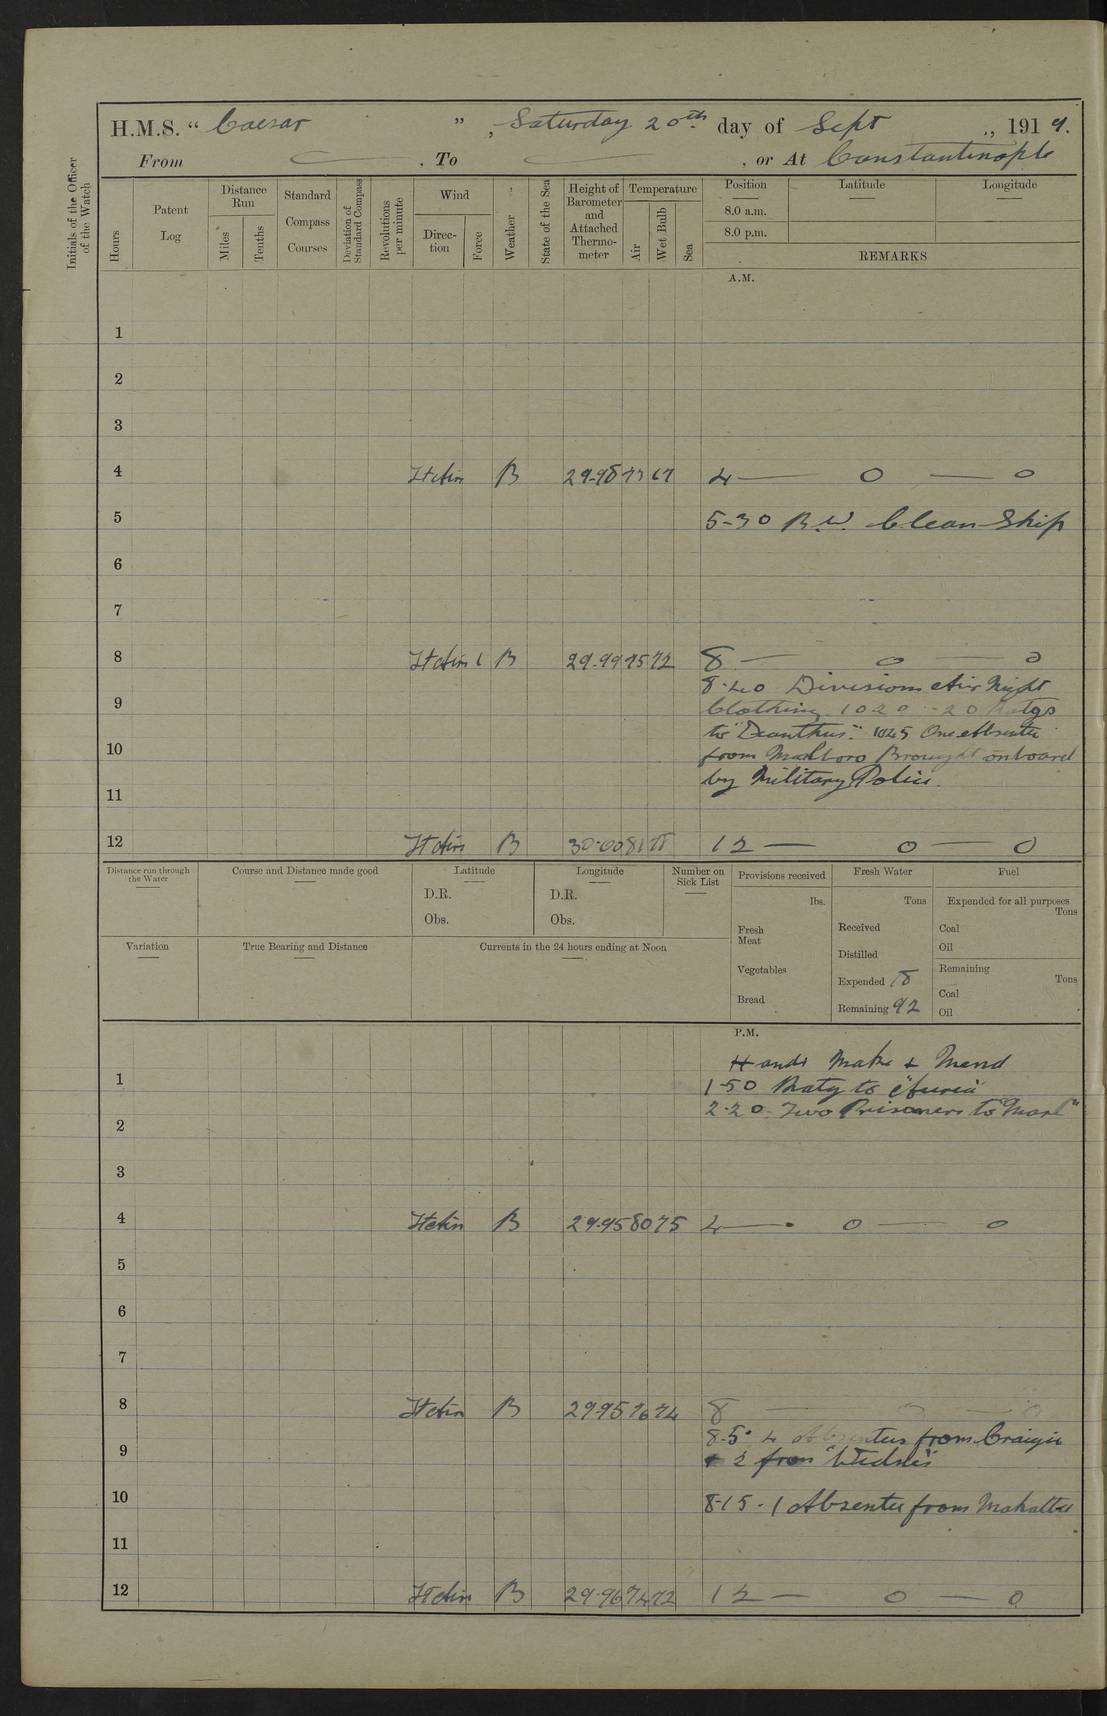 H.M.S. " Caesar " , Saturday 20th day of Sept ,, 1919.
From — . To — , or At Constantinople
Initials of the Officer of the Watch
Hours
Patent Log
Distance Run
Miles
Tenths
Standard Compass Courses
Deviation of Standard Compass
Revolutions per minute
Wind
Direction
Force
Weather
State of the Sea
Height of Barometer and Attached Thermometer
Temperature
Air
Wet Bulb
Sea
Position Latitude Longitude
8.0 a.m.
8.0 p.m.
REMARKS
A.M.
1
2
3
4 B 29.98 73 67 4 — 0 — 0
5 5-30 B.W. Clean Ship
6
7
8 1 B 29.99 75 72 8 — 0 — 0
8.40 Divisions Air Night
9 Clothing 10.20 -20
to "Dianthus". 1045 One absentee
10 from Malboro Brought onboard
by Military Police.
11
12 B 30.00 81 78 12 — 0 — 0
Distance run through the Water
Course and Distance made good
Latitude
D.R.
Obs.
Longitude
D.R.
Obs.
Number on Sick List
Variation
True Bearing and Distance
Currents in the 24 hours ending at Noon
Provisions received
lbs.
Fresh Meat
Vegetables
Bread
Fresh Water
Tons
Received
Distilled
Expended 18
Remaining 92
Fuel
Expended for all purposes
Tons
Coal
Oil
Remaining
Tons
Coal
Oil
P.M.
Hands Make & Mend
1 1-50 Ratg to
2-20 Two Prisoners to
2
3
4 B 29.95 80 75 4 — 0 — 0
5
6
7
8 B 29.95 76 74 8 — 0 — 0
8.5 4 Absentees from
9 + 2 from
10 8-15 - 1 Absentee from
11
12 B 29.96 74 72 12 — 0 — 0